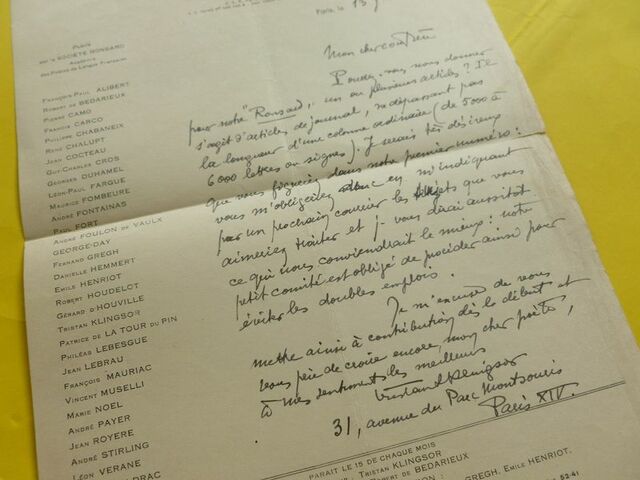 Paris, le 13
PUBLIÉ
PAR LA SOCIÉTÉ RONSARD
ACADÉMIE
DES POÈTES DE LANGUE FRANÇAISE
FRANÇOIS-PAUL ALIBERT
ROBERT DE BÉDARIEUX
PIERRE CAMO
FRANCIS CARCO
PHILIPPE CHABANEIX
RENÉ CHALUPT
JEAN COCTEAU
GUY-CHARLES CROS
GEORGES DUHAMEL
LÉON-PAUL FARGUE
MAURICE FOMBEURE
ANDRÉ FONTAINAS
PAUL FORT
ANDRÉ FOULON DE VAULX
GEORGE-DAY
FERNAND GREGH
DANIELLE HEMMERT
EMILE HENRIOT
ROBERT HOUDELOT
GÉRARD D'HOUVILLE
TRISTAN KLINGSOR
PATRICE DE LA TOUR DU PIN
PHILÉAS LEBESGUE
JEAN LEBRAU
FRANÇOIS MAURIAC
VINCENT MUSELLI
MARIE NOEL
ANDRÉ PAYER
JEAN ROYÈRE
ANDRÉ STIRLING
LÉON VERANE
DRAC
Mon cher confrère
Pouvez-vous nous donner
pour notre "Ronsard" un ou plusieurs articles ? Il
s'agit d'articles de journal, ne dépassant pas
la longueur d'une colonne ordinaire (de 5000 à
6000 lettres ou signes). Je serais très désireux
que vous figuriez dans notre premier numéro :
vous m'obligeriez donc en m'indiquant
par un prochain courrier les sujets que vous
aimeriez traiter et je vous dirai aussitôt
ce qui nous conviendrait le mieux : notre
petit comité est obligé de procéder ainsi pour
éviter les doubles emplois.
Je m'excuse de vous
mettre ainsi à contribution dès le début et
vous prie de croire encore, mon cher poète,
à mes sentiments les meilleurs
Tristan Klingsor
31, avenue du Parc Montsouris
Paris XIV.
PARAIT LE 15 DE CHAQUE MOIS
: TRISTAN KLINGSOR
ROBERT DE BÉDARIEUX
GREGH, EMILE HENRIOT,
52-41